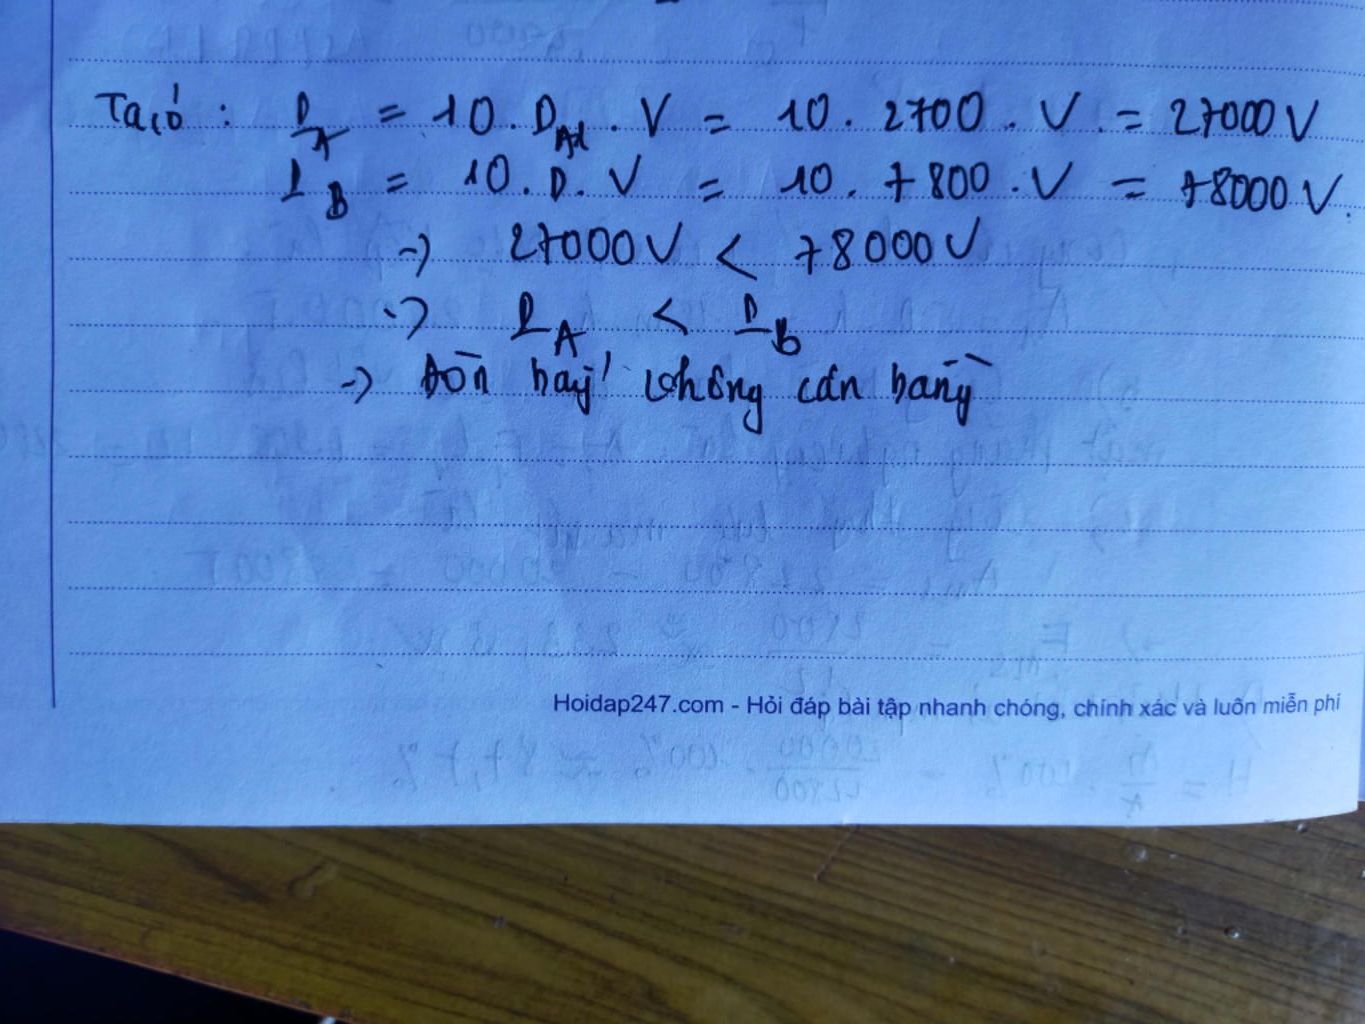 Ta có : P_A = 10 . D_Al . V = 10 . 2700 . V = 27000 V
P_B = 10 . D . V = 10 . 7800 . V = 78000 V.
-> 27000 V < 78000 V
-> P_A < P_B
-> Đòn bẩy không cân bằng
Hoidap247.com - Hỏi đáp bài tập nhanh chóng, chính xác và luôn miễn phí